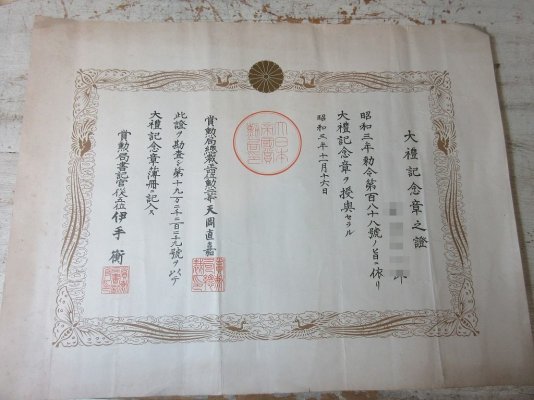 大禮記念章之證
昭和三年勅令第百八十八號ノ旨ニ依リ
大禮記念章ヲ授與セラル
昭和三年十一月十六日
大日本
帝國賞
勲局印
賞勲局總裁正四位勲二等天岡直嘉
此證ヲ勘査シ第十九万二千二百二十九號ヲ以テ
大禮記念章ノ簿冊ニ記入ス
賞勲局書記官從五位伊手衛